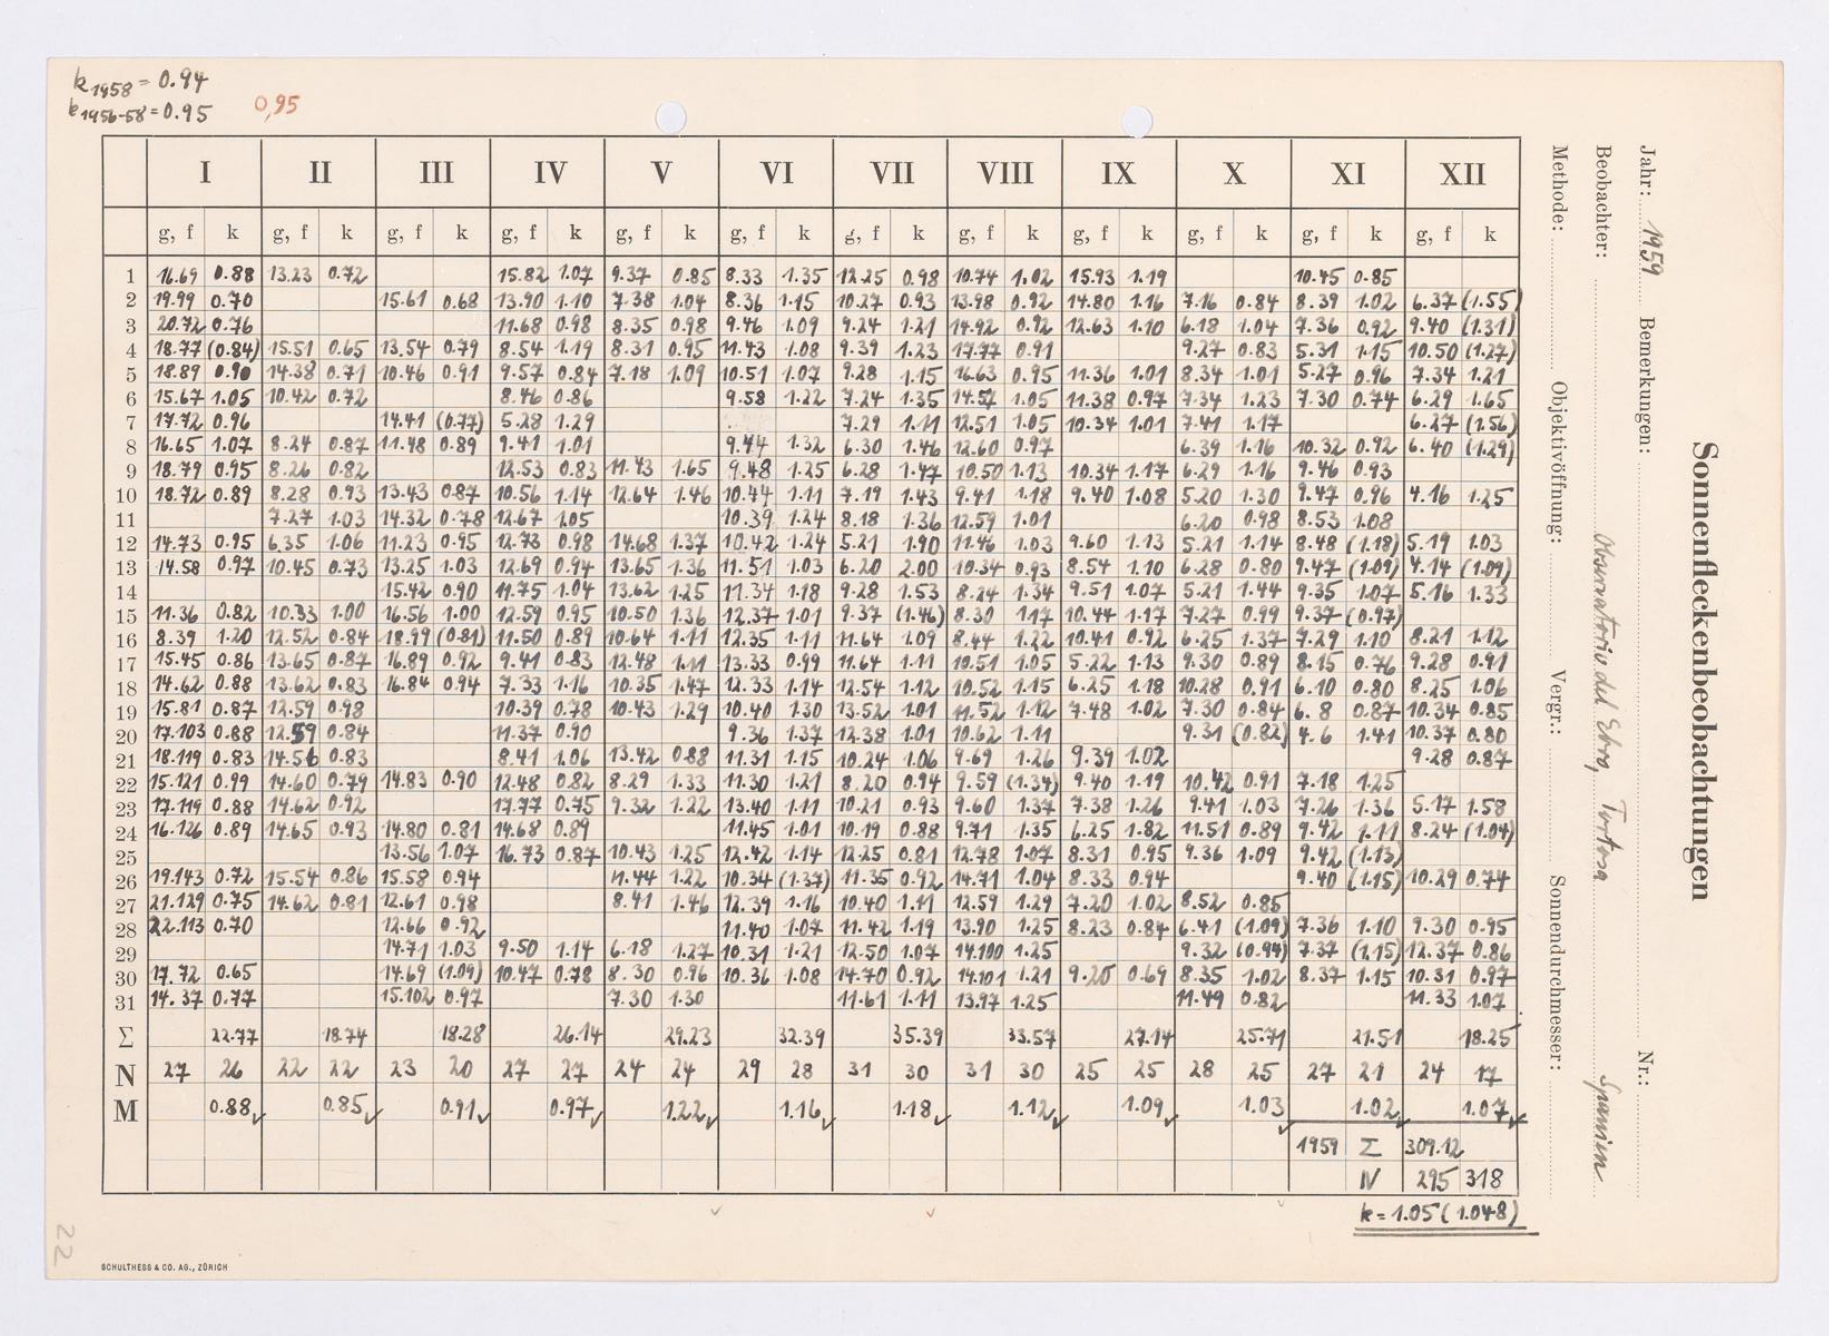 k1958 = 0.94
k1956-58 = 0.95 0,95
I II III IV V VI VII VIII IX X XI XII
g, f k g, f k g, f k g, f k g, f k g, f k g, f k g, f k g, f k g, f k g, f k g, f k
1 16.69 0.88 13.23 0.72 15.82 1.07 9.37 0.85 8.33 1.35 12.25 0.98 10.74 1.02 15.93 1.19 10.45 0.85
2 19.99 0.70 15.61 0.68 13.90 1.10 7.38 1.04 8.36 1.15 10.27 0.93 13.98 0.92 14.80 1.16 7.16 0.84 8.39 1.02 6.37 (1.55)
3 20.72 0.76 11.68 0.98 8.35 0.98 9.46 1.09 9.24 1.21 14.92 0.92 12.63 1.10 6.18 1.04 7.36 0.92 9.40 (1.31)
4 18.77 (0.84) 15.51 0.65 13.54 0.79 8.54 1.19 8.31 0.95 11.43 1.08 9.39 1.23 17.77 0.91 9.27 0.83 5.31 1.15 10.50 (1.27)
5 18.89 0.90 14.38 0.71 10.46 0.91 9.57 0.84 7.18 1.09 10.51 1.07 9.28 1.15 16.63 0.95 11.36 1.01 8.34 1.01 5.27 0.96 7.34 1.21
6 15.67 1.05 10.42 0.72 8.46 0.86 9.58 1.22 7.24 1.35 14.57 1.05 11.38 0.97 7.34 1.23 7.30 0.74 6.29 1.65
7 17.72 0.96 14.41 (0.77) 5.28 1.29 7.29 1.11 12.51 1.05 10.34 1.01 7.41 1.17 6.27 (1.56)
8 16.65 1.07 8.24 0.87 11.48 0.89 9.41 1.01 9.44 1.32 6.30 1.46 12.60 0.97 6.39 1.16 10.32 0.92 6.40 (1.29)
9 18.79 0.95 8.26 0.82 12.53 0.83 11.43 1.65 9.48 1.25 6.28 1.47 10.50 1.13 10.34 1.17 6.29 1.16 9.46 0.93
10 18.72 0.89 8.28 0.93 13.43 0.87 10.56 1.14 12.64 1.46 10.44 1.11 7.19 1.43 9.41 1.18 9.40 1.08 5.20 1.30 9.47 0.96 4.16 1.25
11 7.27 1.03 14.32 0.78 12.67 1.05 10.39 1.24 8.18 1.36 12.59 1.01 6.20 0.98 8.53 1.08
12 14.73 0.95 6.35 1.06 11.23 0.95 12.73 0.98 14.68 1.37 10.42 1.24 5.21 1.90 11.46 1.03 9.60 1.13 5.21 1.14 8.48 (1.18) 5.19 1.03
13 14.58 0.97 10.45 0.73 13.25 1.03 12.69 0.94 13.65 1.36 11.51 1.03 6.20 2.00 10.34 0.93 8.54 1.10 6.28 0.80 9.47 (1.09) 4.14 (1.09)
14 15.42 0.90 11.75 1.04 13.62 1.25 11.34 1.18 9.28 1.53 8.24 1.34 9.51 1.07 5.21 1.44 9.35 1.07 5.16 1.33
15 11.36 0.82 10.33 1.00 16.56 1.00 12.59 0.95 10.50 1.36 12.37 1.01 9.37 (1.46) 8.30 1.17 10.44 1.17 7.27 0.99 9.37 (0.97)
16 8.39 1.20 12.52 0.84 18.99 (0.81) 11.50 0.89 10.64 1.11 12.35 1.11 11.64 1.09 8.44 1.22 10.41 0.92 6.25 1.37 7.29 1.10 8.21 1.12
17 15.45 0.86 13.65 0.87 16.89 0.92 9.41 0.83 12.48 1.11 13.33 0.99 11.64 1.11 10.51 1.05 5.22 1.13 9.30 0.89 8.15 0.76 9.28 0.91
18 14.62 0.88 13.62 0.83 16.84 0.94 7.33 1.16 10.35 1.47 12.33 1.14 12.54 1.12 10.52 1.15 6.25 1.18 10.28 0.91 6.10 0.80 8.25 1.06
19 15.81 0.87 12.59 0.98 10.39 0.78 10.43 1.29 10.40 1.30 13.52 1.01 11.52 1.12 7.48 1.02 7.30 0.84 6. 8 0.87 10.34 0.85
20 17.103 0.88 12.59 0.84 11.37 0.90 9.36 1.37 12.38 1.01 10.62 1.11 9.31 (0.82) 4.6 1.41 10.37 0.80
21 18.119 0.83 14.56 0.83 8.41 1.06 13.42 0.88 11.31 1.15 10.24 1.06 9.69 1.26 9.39 1.02 9.28 0.87
22 15.121 0.99 14.60 0.79 14.83 0.90 12.48 0.82 8.29 1.33 11.30 1.21 8.20 0.94 9.59 (1.34) 9.40 1.19 10.42 0.91 7.18 1.25
23 17.119 0.88 14.62 0.92 17.77 0.75 9.32 1.22 13.40 1.11 10.21 0.93 9.60 1.37 7.38 1.26 9.41 1.03 7.26 1.36 5.17 1.58
24 16.126 0.89 14.65 0.93 14.80 0.81 14.68 0.89 11.45 1.01 10.19 0.88 9.71 1.35 6.25 1.82 11.51 0.89 9.42 1.11 8.24 (1.04)
25 13.56 1.07 16.73 0.87 10.43 1.25 12.42 1.14 12.25 0.81 12.78 1.07 8.31 0.95 9.36 1.09 9.42 (1.13)
26 19.143 0.72 15.54 0.86 15.58 0.94 11.44 1.22 10.34 (1.37) 11.35 0.92 14.71 1.04 8.33 0.94 9.40 (1.15) 10.29 0.74
27 21.129 0.75 14.62 0.81 12.61 0.98 8.41 1.46 12.39 1.16 10.40 1.11 12.59 1.29 7.20 1.02 8.52 0.85
28 22.113 0.70 12.66 0.92 11.40 1.07 11.42 1.19 13.90 1.25 8.23 0.84 6.41 (1.09) 7.36 1.10 9.30 0.95
29 14.71 1.03 9.50 1.14 6.18 1.27 10.31 1.21 12.50 1.07 14.100 1.25 9.32 (0.94) 7.37 (1.15) 12.37 0.86
30 17.72 0.65 14.69 (1.09) 10.47 0.78 8.30 0.96 10.36 1.08 14.70 0.92 14.101 1.21 9.20 0.69 8.35 1.02 8.37 1.15 10.31 0.97
31 14.37 0.77 15.102 0.97 7.30 1.30 11.61 1.11 13.97 1.25 11.49 0.82 11.33 1.07
Σ 22.77 18.74 18.28 26.14 29.23 32.39 35.39 33.57 27.14 25.71 21.51 18.25
N 27 26 22 22 23 20 27 27 24 24 29 28 31 30 31 30 25 25 28 25 27 21 24 17
M 0.88 0.85 0.91 0.97 1.22 1.16 1.18 1.12 1.09 1.03 1.02 1.07
1959 Σ 309.12
N 295 318
k = 1.05 (1.048)
Sonnenfleckenbeobachtungen
Jahr: 1959 Bemerkungen: Nr.:
Beobachter: Observatorio del Ebro, Tortosa Spanien
Methode: Objektivöffnung: Vergr.: Sonnendurchmesser:
22
SCHULTHESS & CO. AG., ZÜRICH